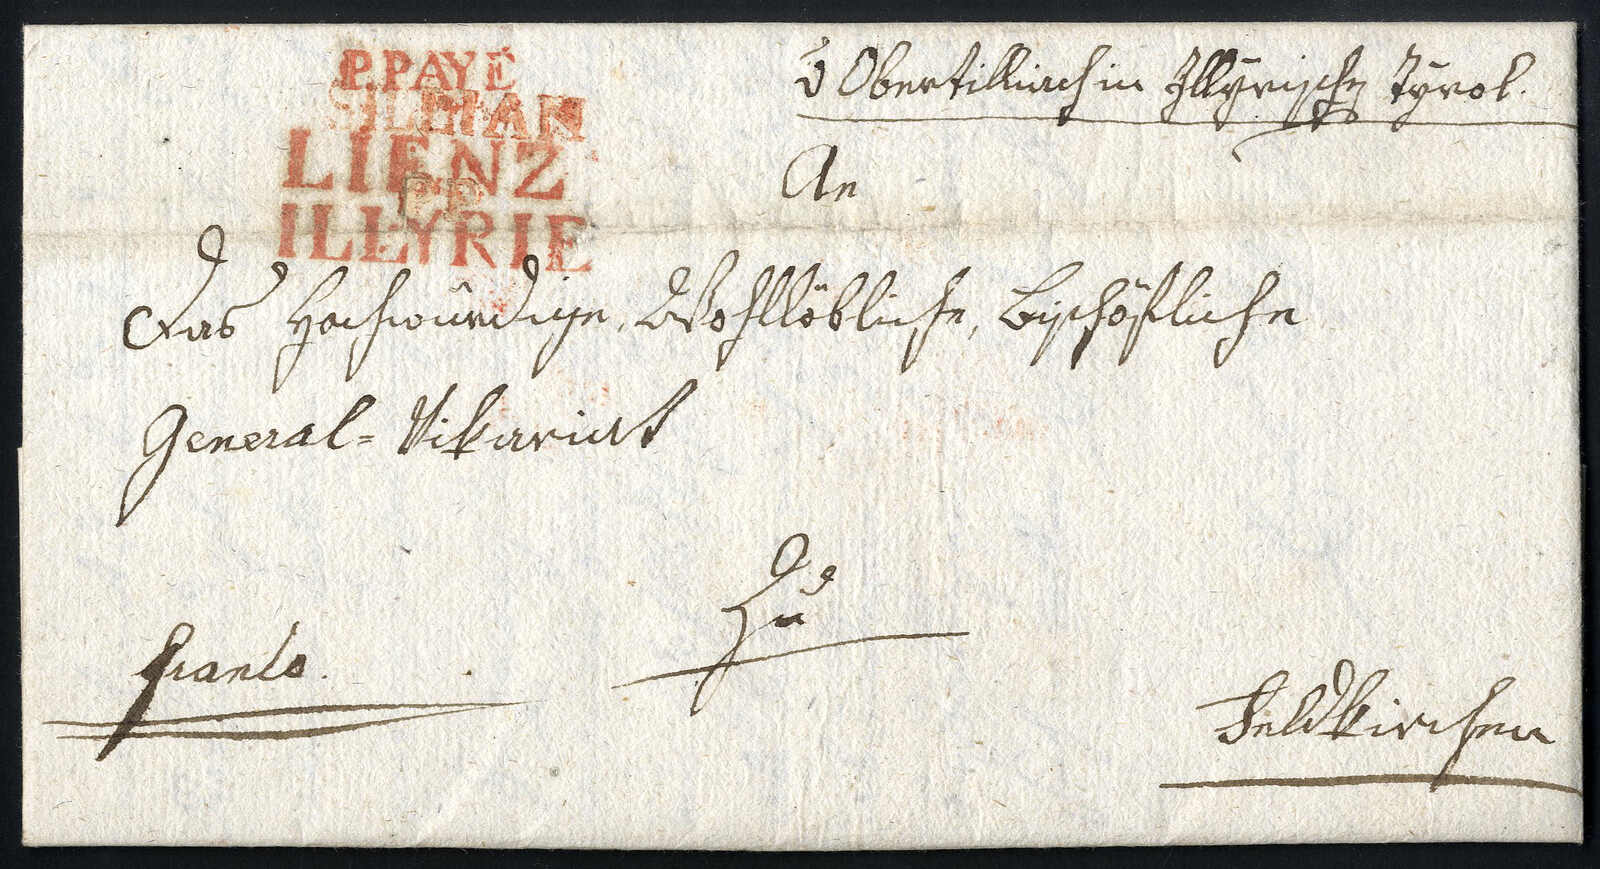 P.PAYÉ
SILLIAN
LIENZ
P.P.
ILLYRIE
v Obertilliach in Illÿrisch Tÿrol.
An
Das Hochwürdige, Wohllöbliche, Bischöfliche
General=Vikariat
Zu
franco.
Feldkirchen